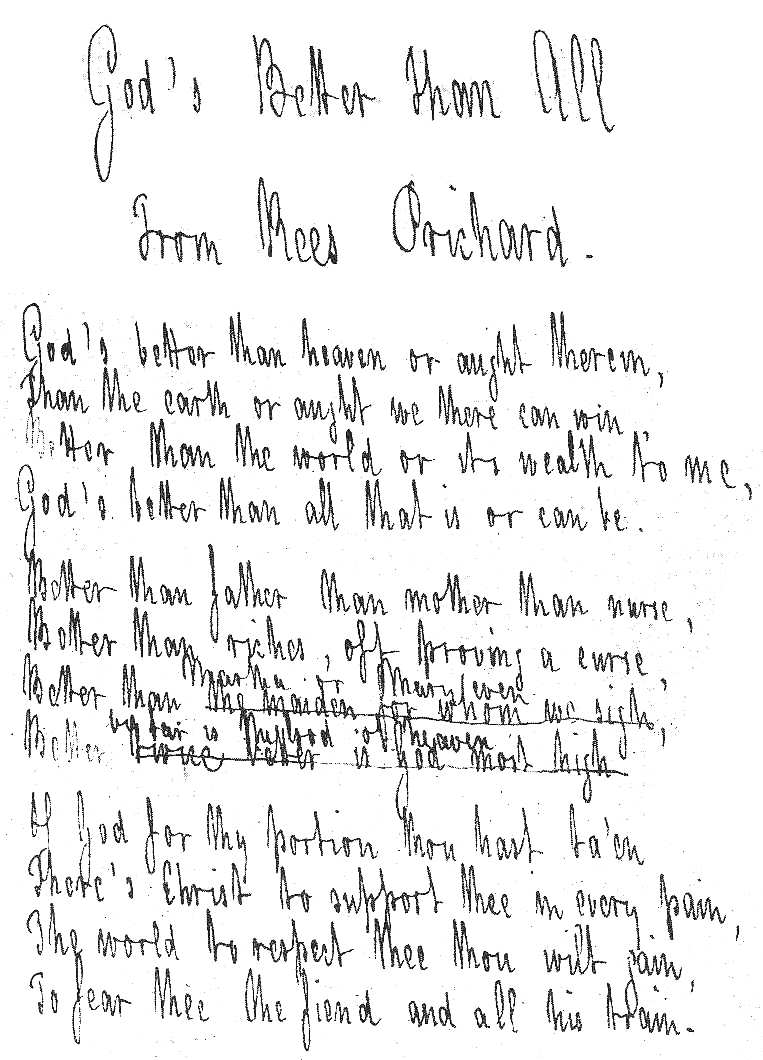 God's Better than All
From Rees Prichard.
God's better than heaven or aught therein,
Than the earth or aught we there can win
Better than the world or its wealth to me,
God's better than all that is or can be.
Better than father than mother than nurse,
Better than riches, oft proving a curse,
Martha or Mary even
Better than the maiden for whom we sigh,
by far is the God of heaven
Better twice better is God most high
If God for thy portion thou hast ta'en
There's Christ to support thee in every pain,
The world to respect thee thou wilt gain,
To fear thee the fiend and all his train.